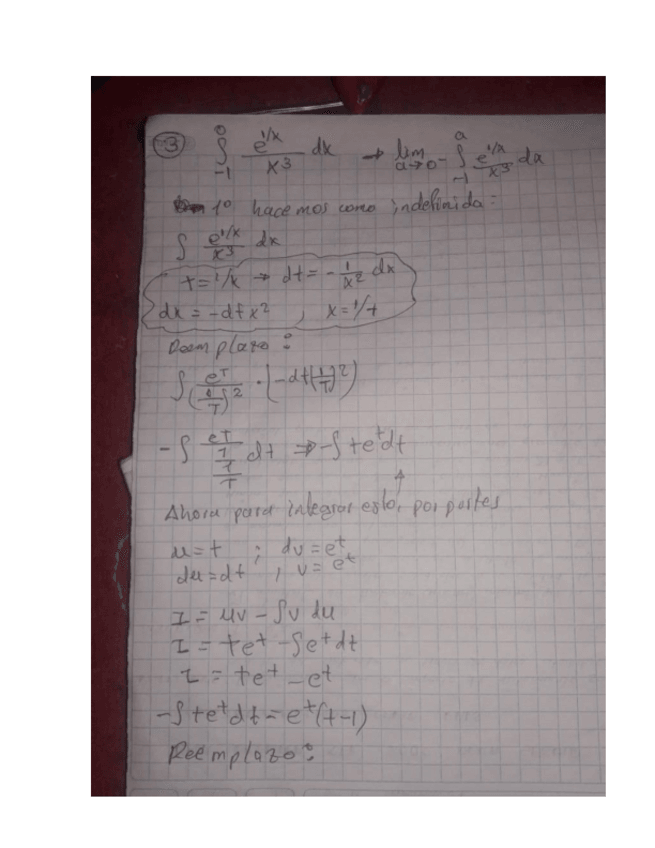 ③ ∫₋₁⁰ e^{1/x}/x³ dx → lim a→0⁻ ∫₋₁ᵃ e^{1/x}/x³ dx
1º hacemos como indefinida:
∫ e^{1/x}/x³ dx
t = 1/x → dt = - 1/x² dx
dx = -dt x² , x = 1/t
Reemplazo:
∫ e^T/(1/T)² · (-dt(1/T)²)
-∫ e^T/(1/(1/T)) dt ⇒ -∫ t e^t dt
Ahora para integrar esto, por partes
u = t ; dv = e^t
du = dt , v = e^t
I = uv - ∫v du
I = te^t - ∫e^t dt
I = te^t - e^t
-∫te^t dt = e^t(t-1)
Reemplazo: